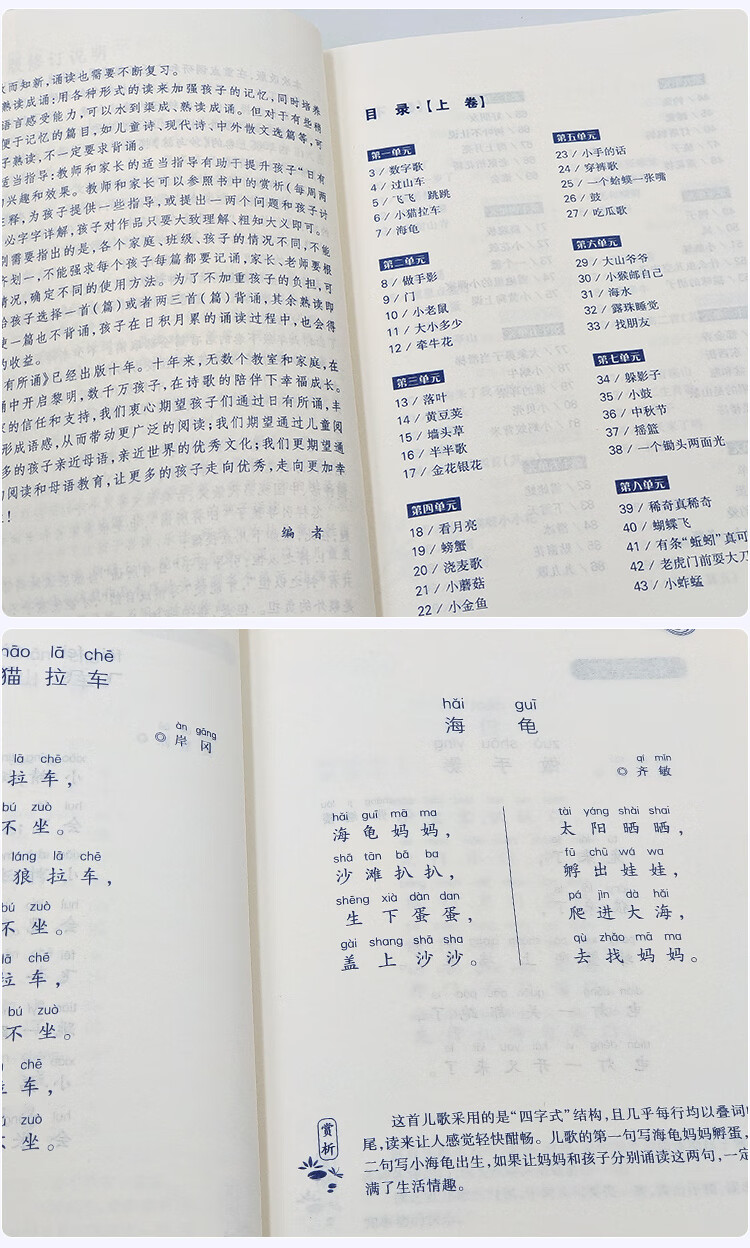 故而知新,诵读也需要不断复习。
熟读成诵:用各种形式的读来加强孩子的记忆,同时培养
语言感受能力,可以水到渠成、熟读成诵。但对于有些稍
便于记忆的篇目,如儿童诗、现代诗、中外散文选篇等,可
子熟读,不一定要求背诵。
适当指导:教师和家长的适当指导有助于提升孩子“日有
的兴趣和效果。教师和家长可以参照书中的赏析(每周两
注释,为孩子提供一些指导,或提出一两个问题和孩子讨
必字字详解,孩子对作品只要大致理解、粗知大义即可。
别需要指出的是,各个家庭、班级、孩子的情况不同,不能
齐划一,不能强求每个孩子每篇都要记诵,家长、老师要根
情况,确定不同的使用方法。为了不加重孩子的负担,可
给孩子选择一首(篇)或者两三首(篇)背诵,其余熟读即
使一篇也不背诵,孩子在日积月累的诵读过程中,也会得
的收益。
有所诵》已经出版十年。十年来,无数个教室和家庭,在
诵中开启黎明,数千万孩子,在诗歌的陪伴下幸福成长。
家的信任和支持,我们衷心期望孩子们通过日有所诵,丰
形成语感,从而带动更广泛的阅读;我们期望通过儿童阅
多的孩子亲近母语,亲近世界的优秀文化;我们更期望通
的阅读和母语教育,让更多的孩子走向优秀,走向更加幸
!
编 者
目 录·【上 卷】
第一单元
3 / 数字歌
4 / 过山车
5 / 飞飞 跳跳
6 / 小猫拉车
7 / 海龟
第二单元
8 / 做手影
9 / 门
10 / 小老鼠
11 / 大小多少
12 / 牵牛花
第三单元
13 / 落叶
14 / 黄豆荚
15 / 墙头草
16 / 半半歌
17 / 金花银花
第四单元
18 / 看月亮
19 / 螃蟹
20 / 浇麦歌
21 / 小蘑菇
22 / 小金鱼
第五单元
23 / 小手的话
24 / 穿裤歌
25 / 一个蛤蟆一张嘴
26 / 鼓
27 / 吃瓜歌
第六单元
29 / 大山爷爷
30 / 小猴郎自己
31 / 海水
32 / 露珠睡觉
33 / 找朋友
第七单元
34 / 躲影子
35 / 小鼓
36 / 中秋节
37 / 摇篮
38 / 一个锄头两面光
第八单元
39 / 稀奇真稀奇
40 / 蝴蝶飞
41 / 有条“蚯蚓”真可
42 / 老虎门前耍大刀
43 / 小蚱蜢
māo lā chē
猫 拉 车
àn gāng
◎ 岸 冈
lā chē
拉 车,
bú zuò
不 坐。
láng lā chē
狼 拉 车,
bú zuò
不 坐。
lā chē
拉 车,
bú zuò
不 坐。
chē
车,
zuò
坐。
hǎi guī
海 龟
qí mǐn
◎ 齐 敏
hǎi guī mā ma
海 龟 妈 妈,
shā tān bā ba
沙 滩 扒 扒,
shēng xià dàn dan
生 下 蛋 蛋,
gài shang shā sha
盖 上 沙 沙。
tài yáng shài shai
太 阳 晒 晒,
fū chū wá wa
孵 出 娃 娃,
pá jìn dà hǎi
爬 进 大 海,
qù zhǎo mā ma
去 找 妈 妈。
赏析
这首儿歌采用的是“四字式”结构,且几乎每行均以叠词
尾,读来让人感觉轻快酣畅。儿歌的第一句写海龟妈妈孵蛋,
二句写小海龟出生,如果让妈妈和孩子分别诵读这两句,一定
满了生活情趣。